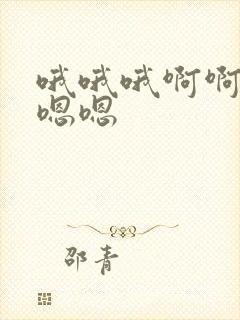 哦哦哦啊啊
嗯嗯
邵青